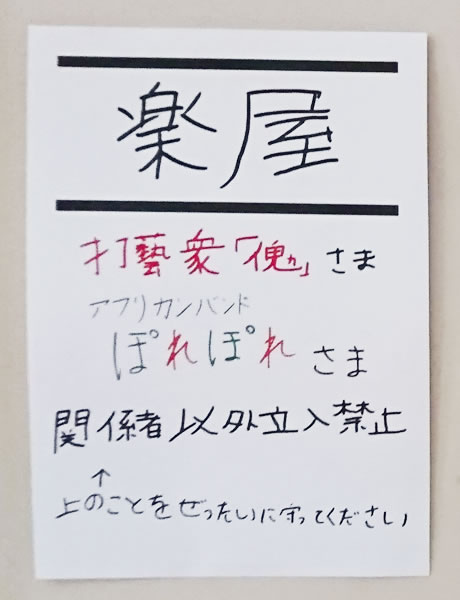 楽屋
打藝衆「傀」さま
アフリカンバンド
ぽれぽれ さま
関係者以外立入禁止
↑
上のことをぜったいに守ってください